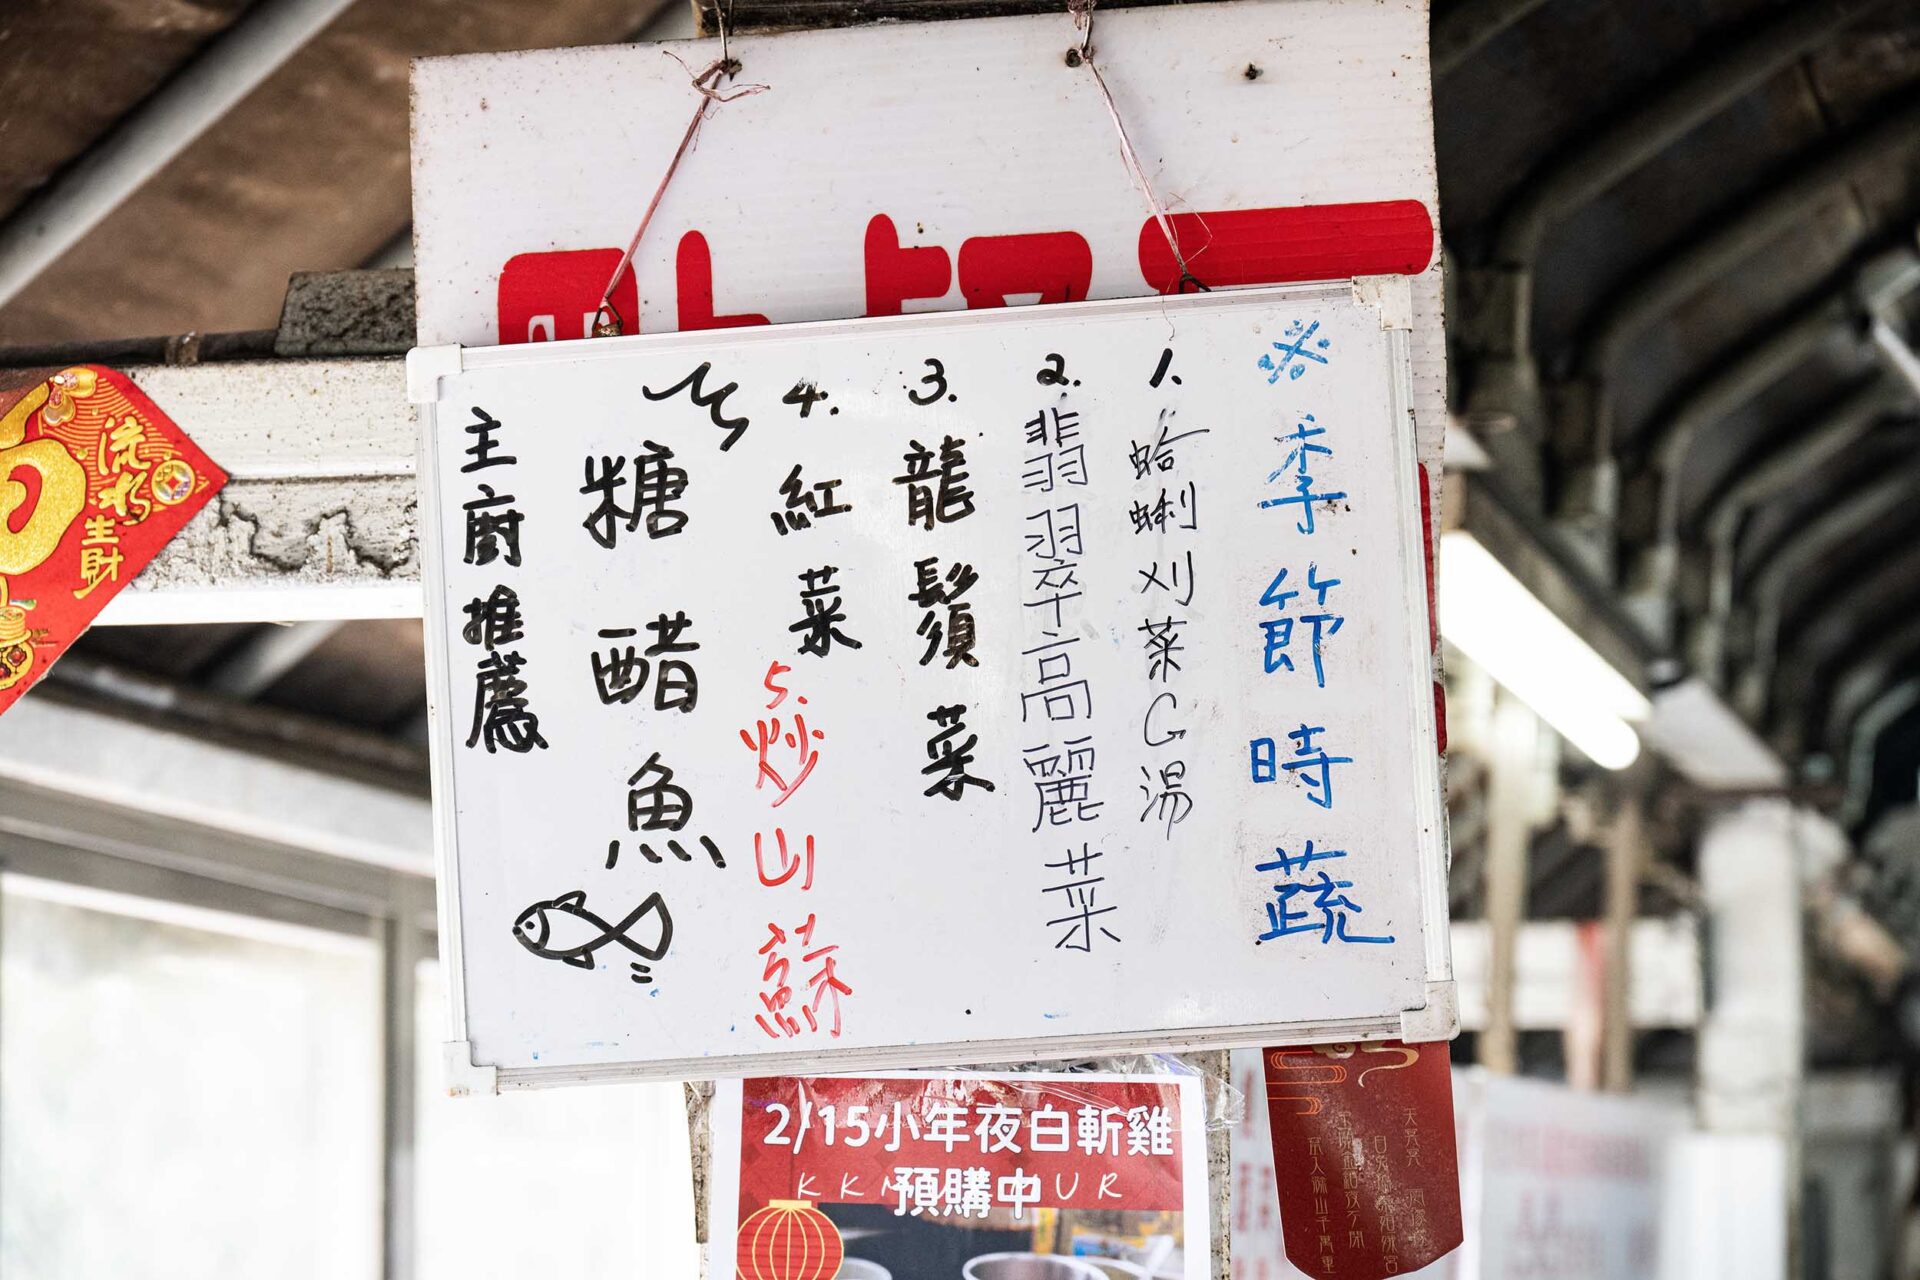 ※季節時蔬
1.蛤蜊刈菜G湯
2.翡翠高麗菜
3.龍鬚菜
4.紅菜
5.炒山蘇
糖醋魚
主廚推薦
流水生財
2/15小年夜白斬雞
預購中